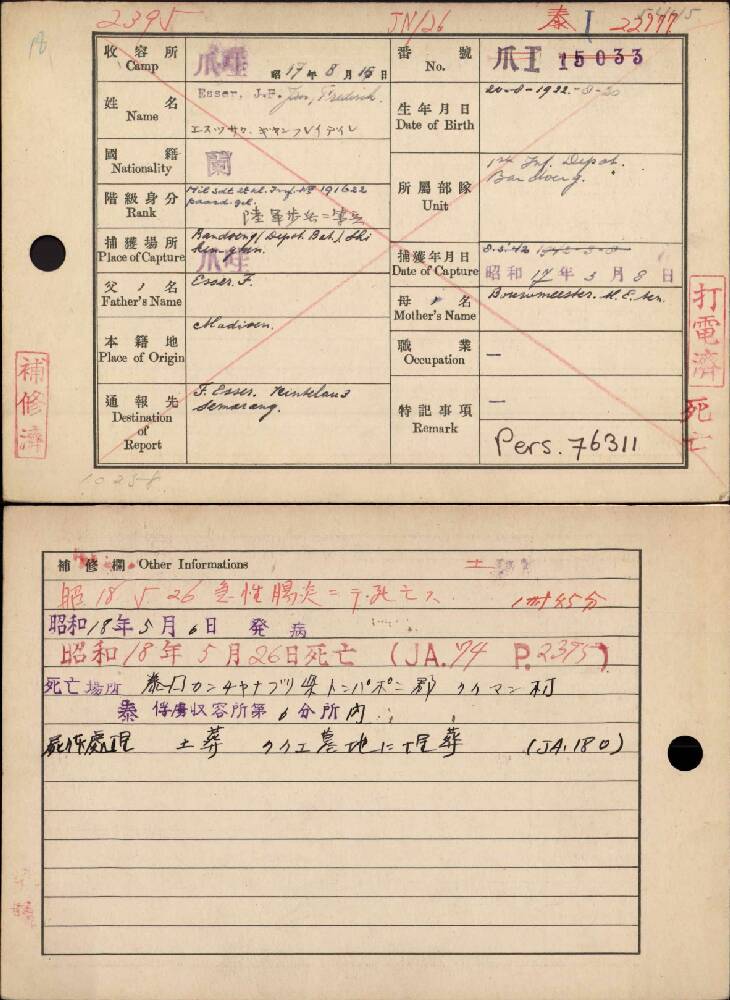 2395
JN/26
泰 I 22977
收容所 Camp 爪哇 昭17年8月15日
番號 No. 爪I 15033
姓名 Name Esser, J.F. Jan, Frederik.
エスツサク、ヂヤンフレイデイレ
生年月日 Date of Birth 20-8-1922
國籍 Nationality 蘭
階級身分 Rank Mil sdt 2e kl. Inf. 191622
陸軍歩兵二等兵
所屬部隊 Unit 1e Inf. Depot. Bandoeng.
捕獲場所 Place of Capture Bandoeng/Depot Bat./
爪哇
捕獲年月日 Date of Capture 8.3.42
昭和17年3月8日
父ノ名 Father's Name Esser. F.
母ノ名 Mother's Name Bouwmeester. M.E. ten.
本籍地 Place of Origin Madioen.
職業 Occupation —
通報先 Destination of Report F. Esser.
Semarang.
特記事項 Remark —
Pers. 76311
補修濟
打電濟
死亡
10258
補修欄 Other Informations
昭18 5 26 急性腸炎ニテ死亡ス 1時45分
昭和18年5月6日 発病
昭和18年5月26日死亡 (JA.74 P.2395)
死亡場所 泰国カンチヤナブリ県トンパポン郡クイマン村
泰俘虜収容所第6分所内
屍体處理 土葬 クリエ墓地に埋葬 (JA.180)